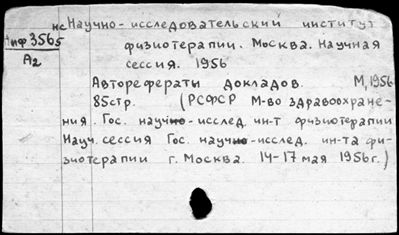 нс Научно-исследовательский институт
Инф 3565
А2
физиотерапии. Москва. Научная
сессия. 1956
Авторефераты докладов. М, 1956
85стр. (РСФСР М-во здравоохране-
ния. Гос. научно-исслед. ин-т физиотерапии
Науч. сессия Гос. научно-исслед. ин-та фи-
зиотерапии г. Москва. 14-17 мая 1956г.)